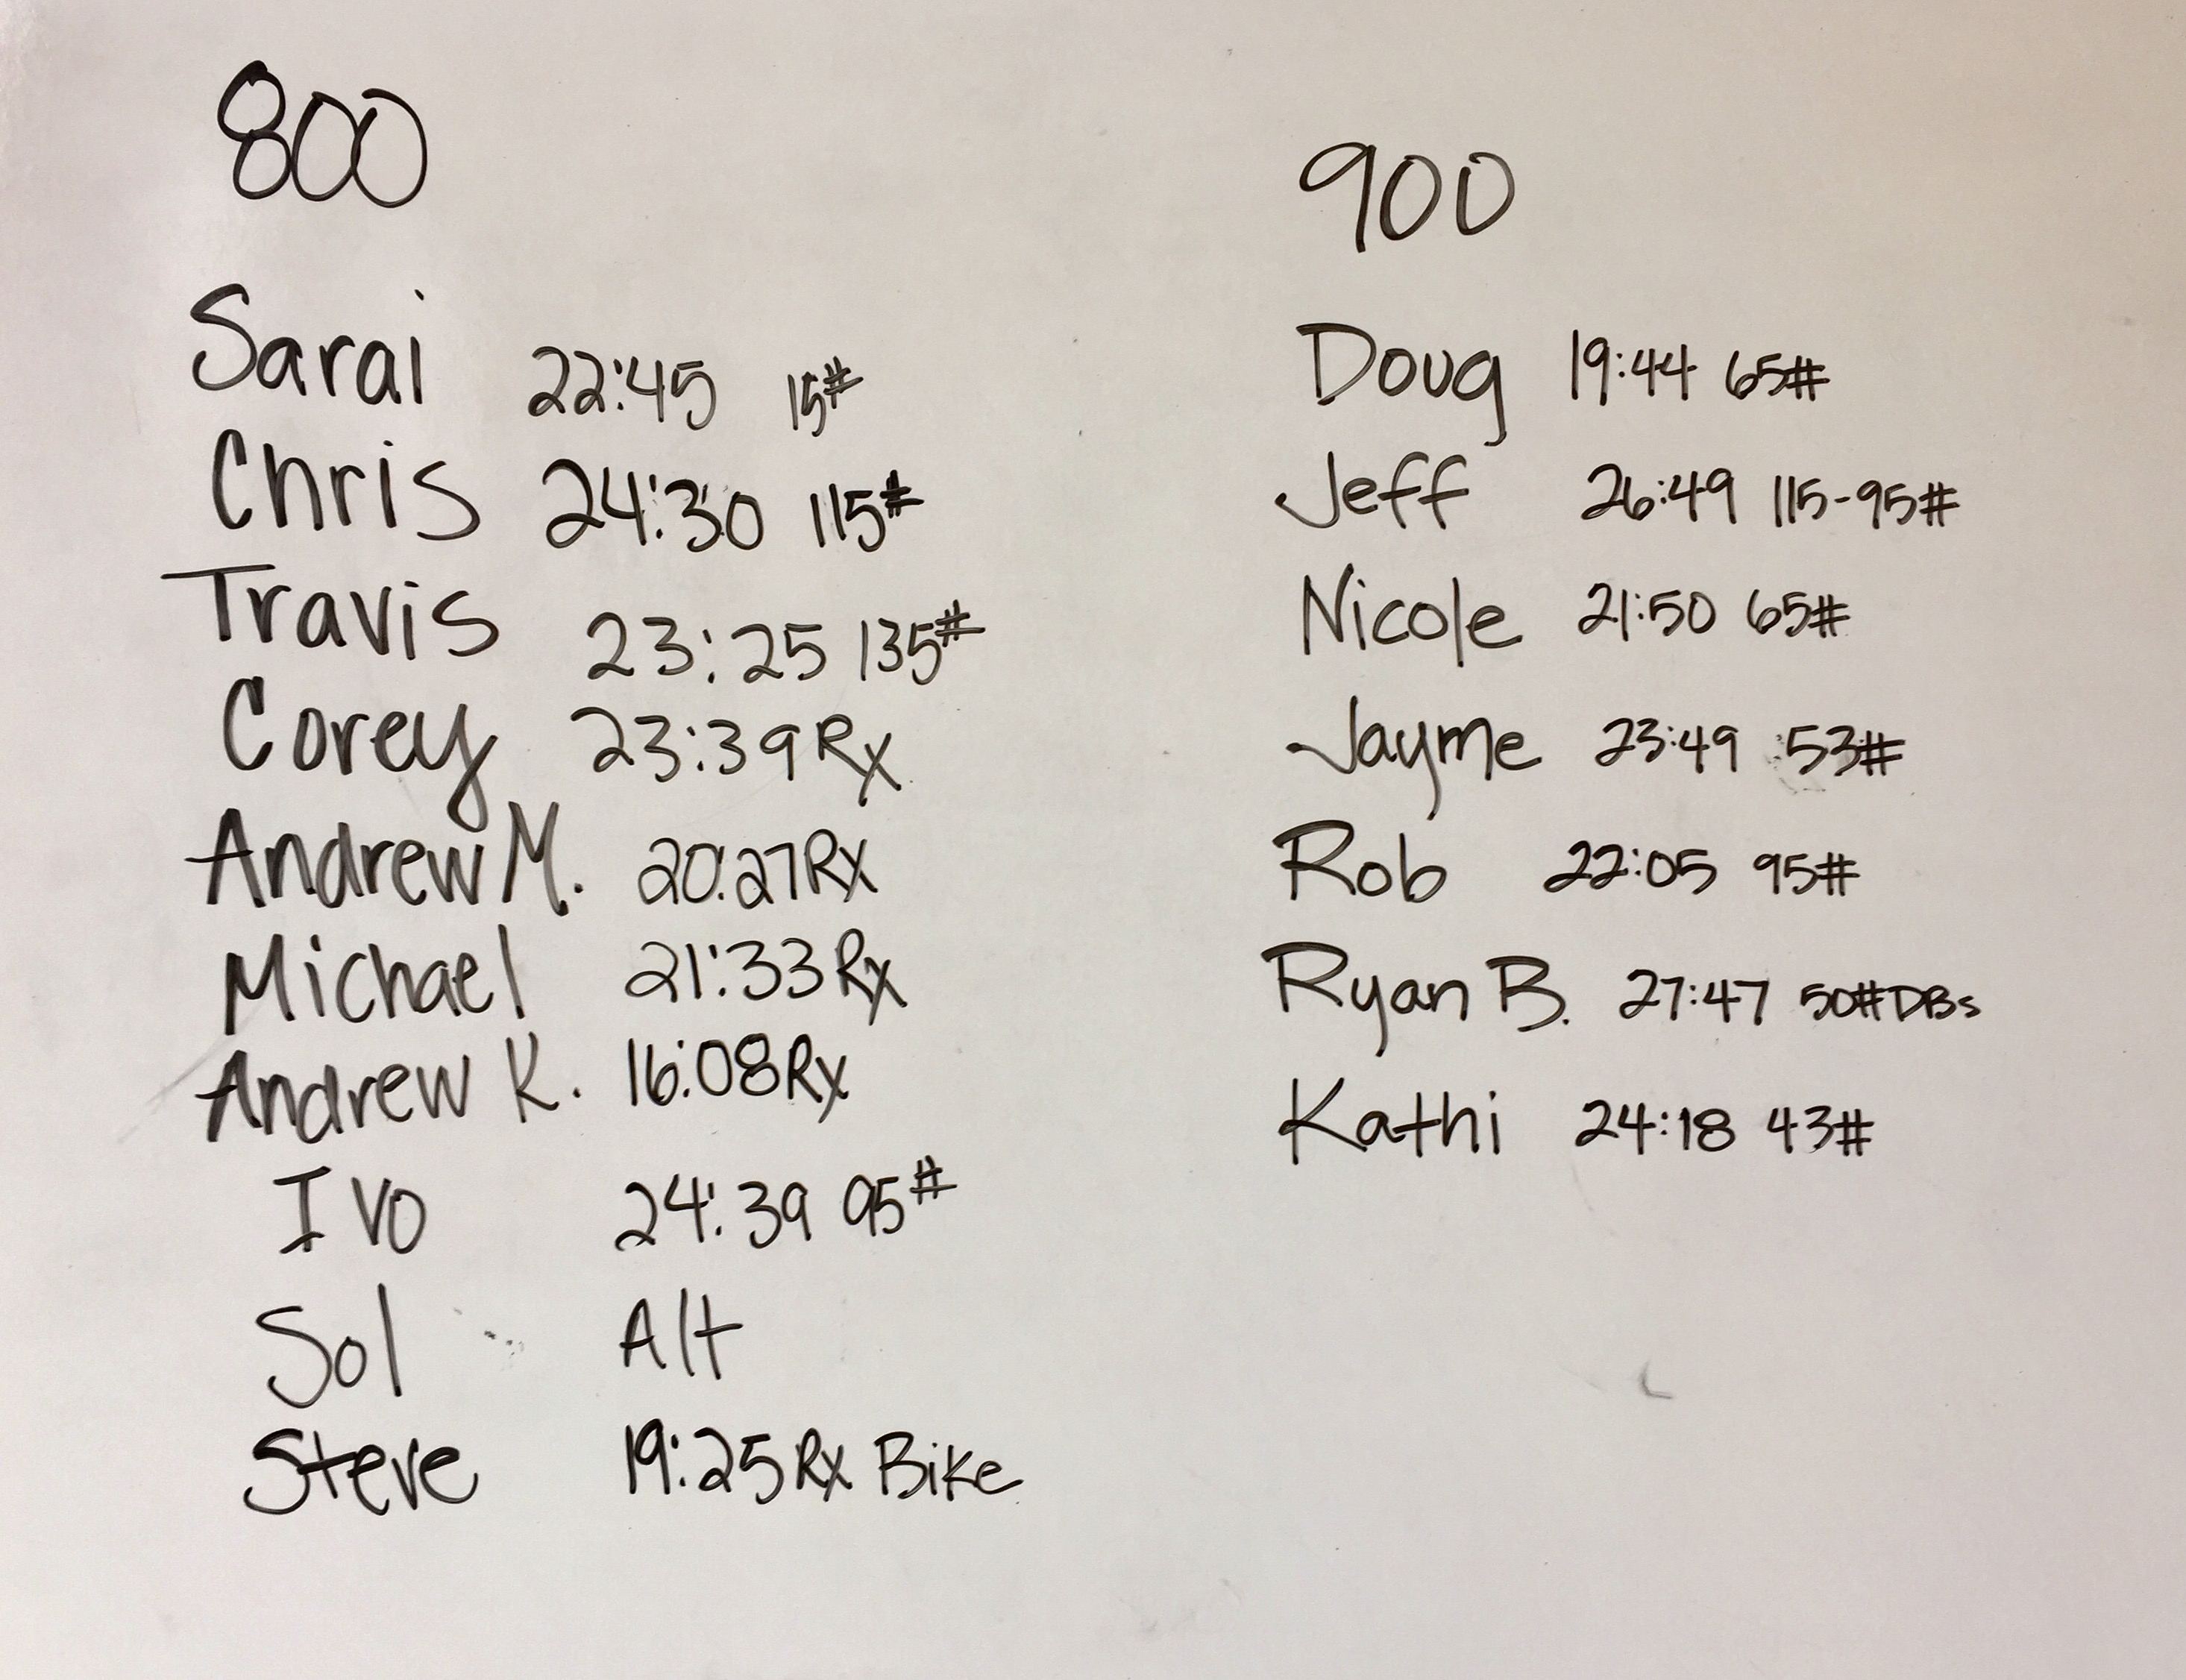 800
Sarai 22:45 15#
Chris 24:30 115#
Travis 23:25 135#
Corey 23:39 Rx
Andrew M. 20:27 Rx
Michael 21:33 Rx
Andrew K. 16:08 Rx
Ivo 24:39 95#
Sol Alt
Steve 19:25 Rx Bike
900
Doug 19:44 65#
Jeff 26:49 115-95#
Nicole 21:50 65#
Jayme 23:49 53#
Rob 22:05 95#
Ryan B. 27:47 50# DBs
Kathi 24:18 43#